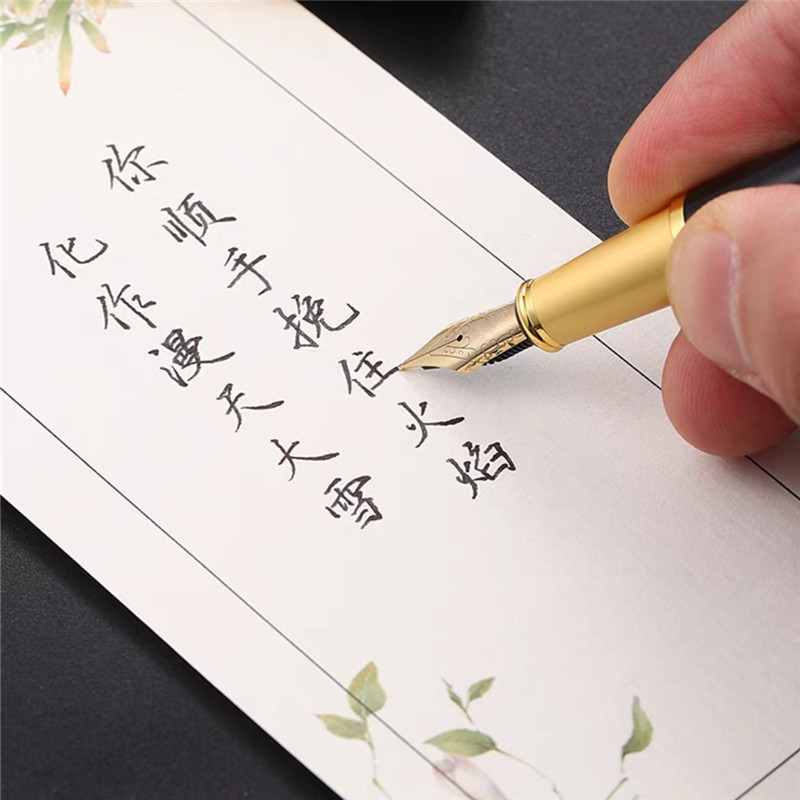 你顺手挽住火焰
化作漫天大雪